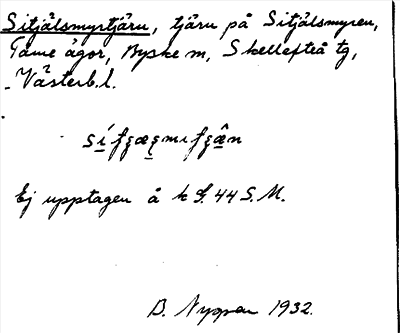 Sitjälsmyrtjäru, tjäru på Sitjälsmyren,
Tåme ägor, Byske sn, Skellefteå tg,
Västerb.l.
Ej upptagen å k S. 44 S.M.
B. Nyman 1932.